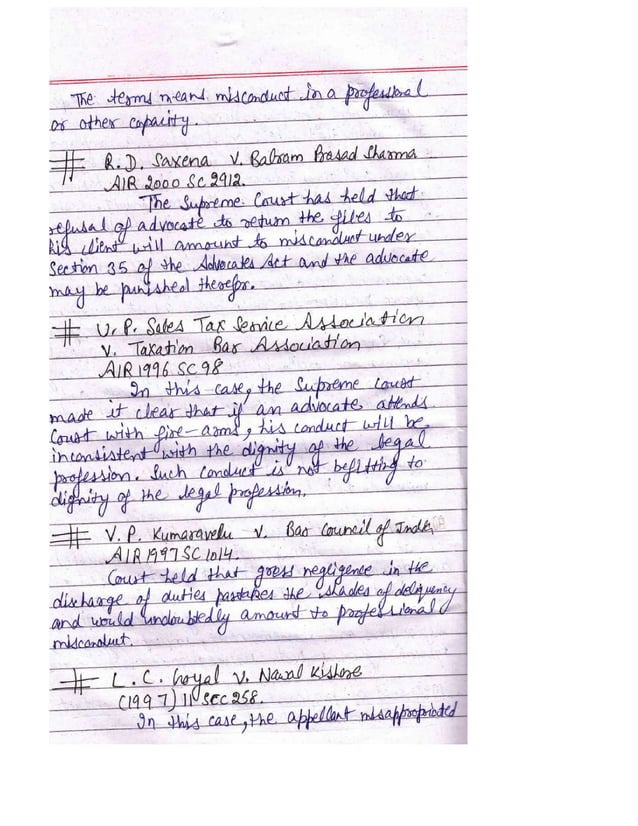 The terms means misconduct in a professional
or other capacity.
# R.D. Saxena V. Balram Prasad Sharma
AIR 2000 SC 2912.
The Supreme Court has held that
refusal of advocate to return the files to
his client will amount to misconduct under
Section 35 of the Advocates Act and the advocate
may be punished therefor.
# U.P. Sales Tax Service Association
V. Taxation Bar Association
AIR 1996 SC 98
In this case, the Supreme Court
made it clear that if an advocate attends
Court with fire-arms, his conduct will be
inconsistent with the dignity of the legal
profession. Such conduct is not befitting to
dignity of the legal profession.
# V.P. Kumaravelu V. Bar Council of India
AIR 1997 SC 1014.
Court held that gross negligence in the
discharge of duties partakes the shades of deliquency
and would undoubtedly amount to professional
misconduct.
# L.C. Goyal V. Nawal Kishore
(1997) 11 SCC 258.
In this case, the appellant misappropriated